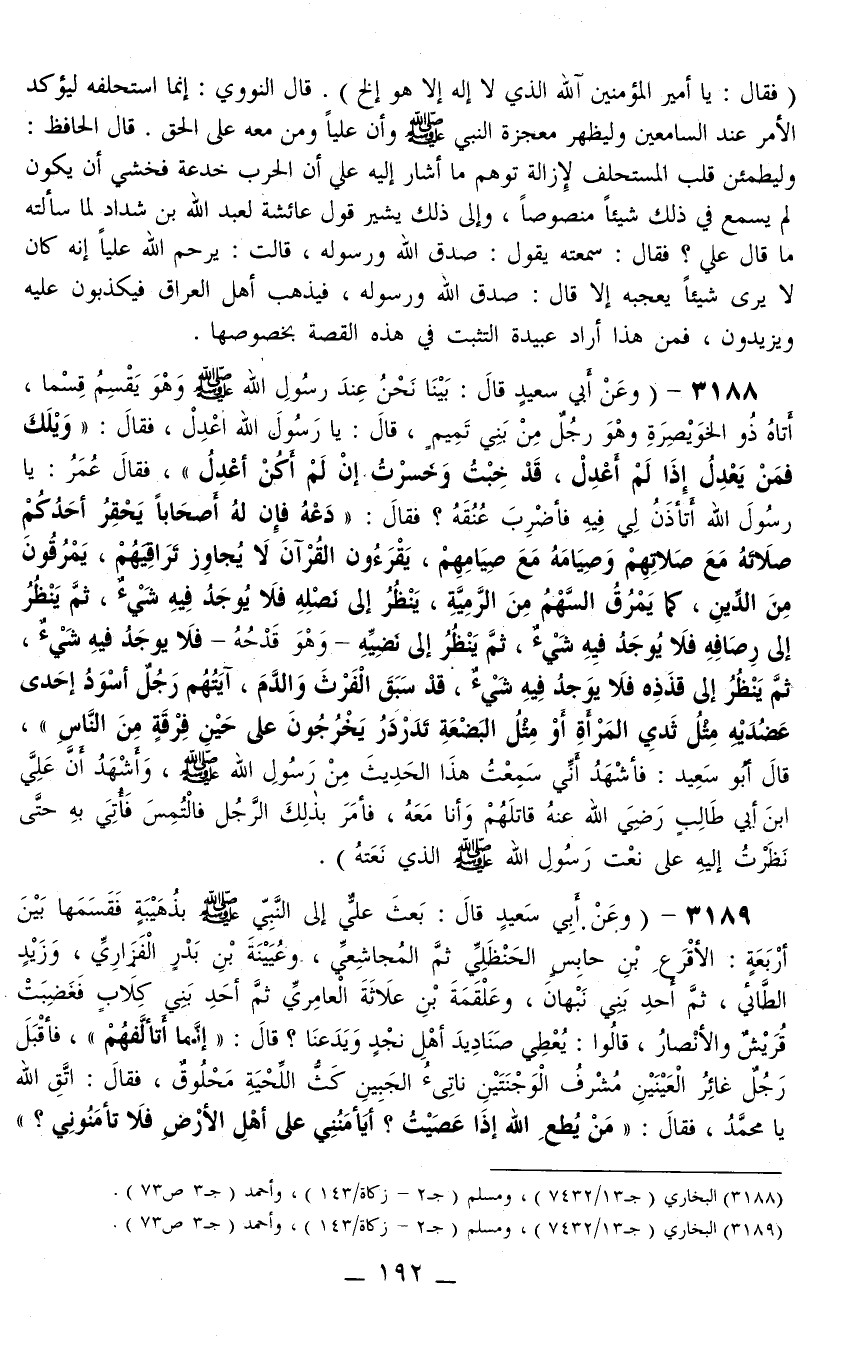 ( فقال : يا أمير المؤمنين آلله الذي لا إله إلا هو إلخ ) . قال النووي : إنما استحلفه ليؤكد
الأمر عند السامعين وليظهر معجزة النبي ﷺ وأن علياً ومن معه على الحق . قال الحافظ :
وليطمئن قلب المستحلف لإزالة توهم ما أشار إليه علي أن الحرب خدعة فخشي أن يكون
لم يسمع في ذلك شيئاً منصوصاً ، وإلى ذلك يشير قول عائشة لعبد الله بن شداد لما سألته
ما قال علي ؟ فقال : سمعته يقول : صدق الله ورسوله ، قالت : يرحم الله علياً إنه كان
لا يرى شيئاً يعجبه إلا قال : صدق الله ورسوله ، فيذهب أهل العراق فيكذبون عليه
ويزيدون ، فمن هذا أراد عبيدة التثبت في هذه القصة بخصوصها .
٣١٨٨ – ( وعَنْ أبي سعيدٍ قالَ : بَيْنَا نَحْنُ عِندَ رسولِ الله ﷺ وَهْوَ يَقْسِمُ قِسْما ،
أتاهُ ذُو الخوَيْصِرَةِ وهْوَ رجُلٌ مِنْ بَنِي تَمِيمٍ ، قالَ : يا رَسُولَ الله اعْدِلْ ، فقالَ : « وَيْلَكَ
فمَنْ يَعْدِلُ إِذَا لَمْ أَعْدِلْ ، قَدْ خِبْتُ وَخَسرْتُ إنْ لَمْ أَكُنْ أعْدِلُ » ، فقالَ عُمَرُ : يا
رسُولَ الله أتأذَنُ لِي فِيهِ فأضْرِبَ عُنُقَهُ ؟ فقالَ : « دَعْهُ فإن لهُ أصحَاباً يَحْقِرُ أحَدُكُمْ
صلَاتَهُ مَعَ صَلاتِهِمْ وَصِيَامَهُ مَعَ صِيامِهِمْ ، يَقْرَءُون القُرْآنَ لَا يُجاوِز تَرَاقِيَهُمْ ، يَمْرُقُونَ
مِنَ الدِّينِ ، كما يَمْرُقُ السَّهْمُ مِنَ الرَّمِيَّةِ ، يَنْظُرُ إلى نَصْلِهِ فَلَا يُوجَدُ فِيهِ شَيْءٌ ، ثمَّ يَنْظُرُ
إلى رِصَافِهِ فَلَا يُوجَدُ فِيهِ شَيْءٌ ، ثمَّ يَنْظُرُ إلى نَضِيِّهِ – وَهْوَ قَدْحُهُ – فَلَا يوجَدُ فيهِ شَيْءٌ ،
ثمَّ يَنْظُرُ إلى قذَذِه فلَا يوَجدُ فيهِ شَيْءٌ ، قدْ سبَقَ الْفَرْثَ وَالدَّمَ ، آيَتُهُم رَجُلٌ أسْوَدُ إحدى
عَضُدَيْهِ مِثْلُ ثَدي المَرْأَةِ أوْ مِثْلُ البَضْعَةِ تَدَرْدَرُ يَخْرُجُونَ على حَيْنِ فِرْقَةٍ مِنَ النَّاسِ » ،
قالَ أبُو سَعِيد : فأشْهَدُ أنِّي سَمِعْتُ هذَا الحَدِيثَ مِنْ رَسُولِ الله ﷺ ، وَأشْهَدُ أنَّ عَلِيَّ
ابنَ أبي طَالِبٍ رَضِيَ الله عنهُ قاتلَهُمْ وَأنا مَعَهُ ، فأمَرَ بذْلِكَ الرَّجُل فالْتُمِسَ فَأُتِيَ بهِ حتَّى
نَظَرْتُ إليهِ على نَعْت رَسُولِ الله ﷺ الذي نَعَتهُ ) .
٣١٨٩ – ( وعَنْ أبِي سَعيدٍ قالَ : بَعثَ عليٌّ إلى النَّبِيِّ ﷺ بذُهَيْبَةٍ فَقَسَمَها بَيْنَ
أرْبَعَةٍ : الأقْرَعِ بْنِ حابِسٍ الحَنْظَلِيِّ ثمَّ المُجاشِعِيِّ ، وعُيَيْنَةَ بْنِ بَدْرٍ الْفَزَارِيِّ ، وَزَيْدٍ
الطَّائي ، ثمَّ أحدِ بَنِي نَبْهانَ ، وعَلْقَمَةَ بْنِ علَاثَةَ العامِرِيِّ ثمَّ أحَدِ بَنِي كِلَابٍ فَغَضِبَتْ
قُرَيْشٌ والأنْصارُ ، قالُوا : يُعْطِي صَنَادِيدَ أهْلِ نجْدٍ وَيَدَعنَا ؟ قالَ : « إنَّما أتألَّفهُمْ » ، فأقْبَلَ
رَجُلٌ غائِرُ الْعَيْنَيْنِ مُشْرفُ الْوَجْنَتَيْنِ ناتِىءُ الجَبِينِ كَثُّ اللِّحْيَةِ مَحْلُوقٌ ، فقالَ : اتَّقِ الله
يا محمَّدُ ، فقالَ : « مَنْ يُطعِ الله إذَا عَصَيْتُ ؟ أيَأمَنُنِي على أهْلِ الأرْضِ فَلَا تأمَنُونِي ؟ »
(٣١٨٨) البخاري ( جـ٧٤٣٢/١٣ ) ، ومسلم ( جـ٢ – زكاة/١٤٣ ) ، وأحمد ( جـ٣ ص٧٣ ) .
(٣١٨٩) البخاري ( جـ٧٤٣٢/١٣ ) ، ومسلم ( جـ٢ – زكاة/١٤٣ ) ، وأحمد ( جـ٣ ص٧٣ ) .
– ١٩٢ –